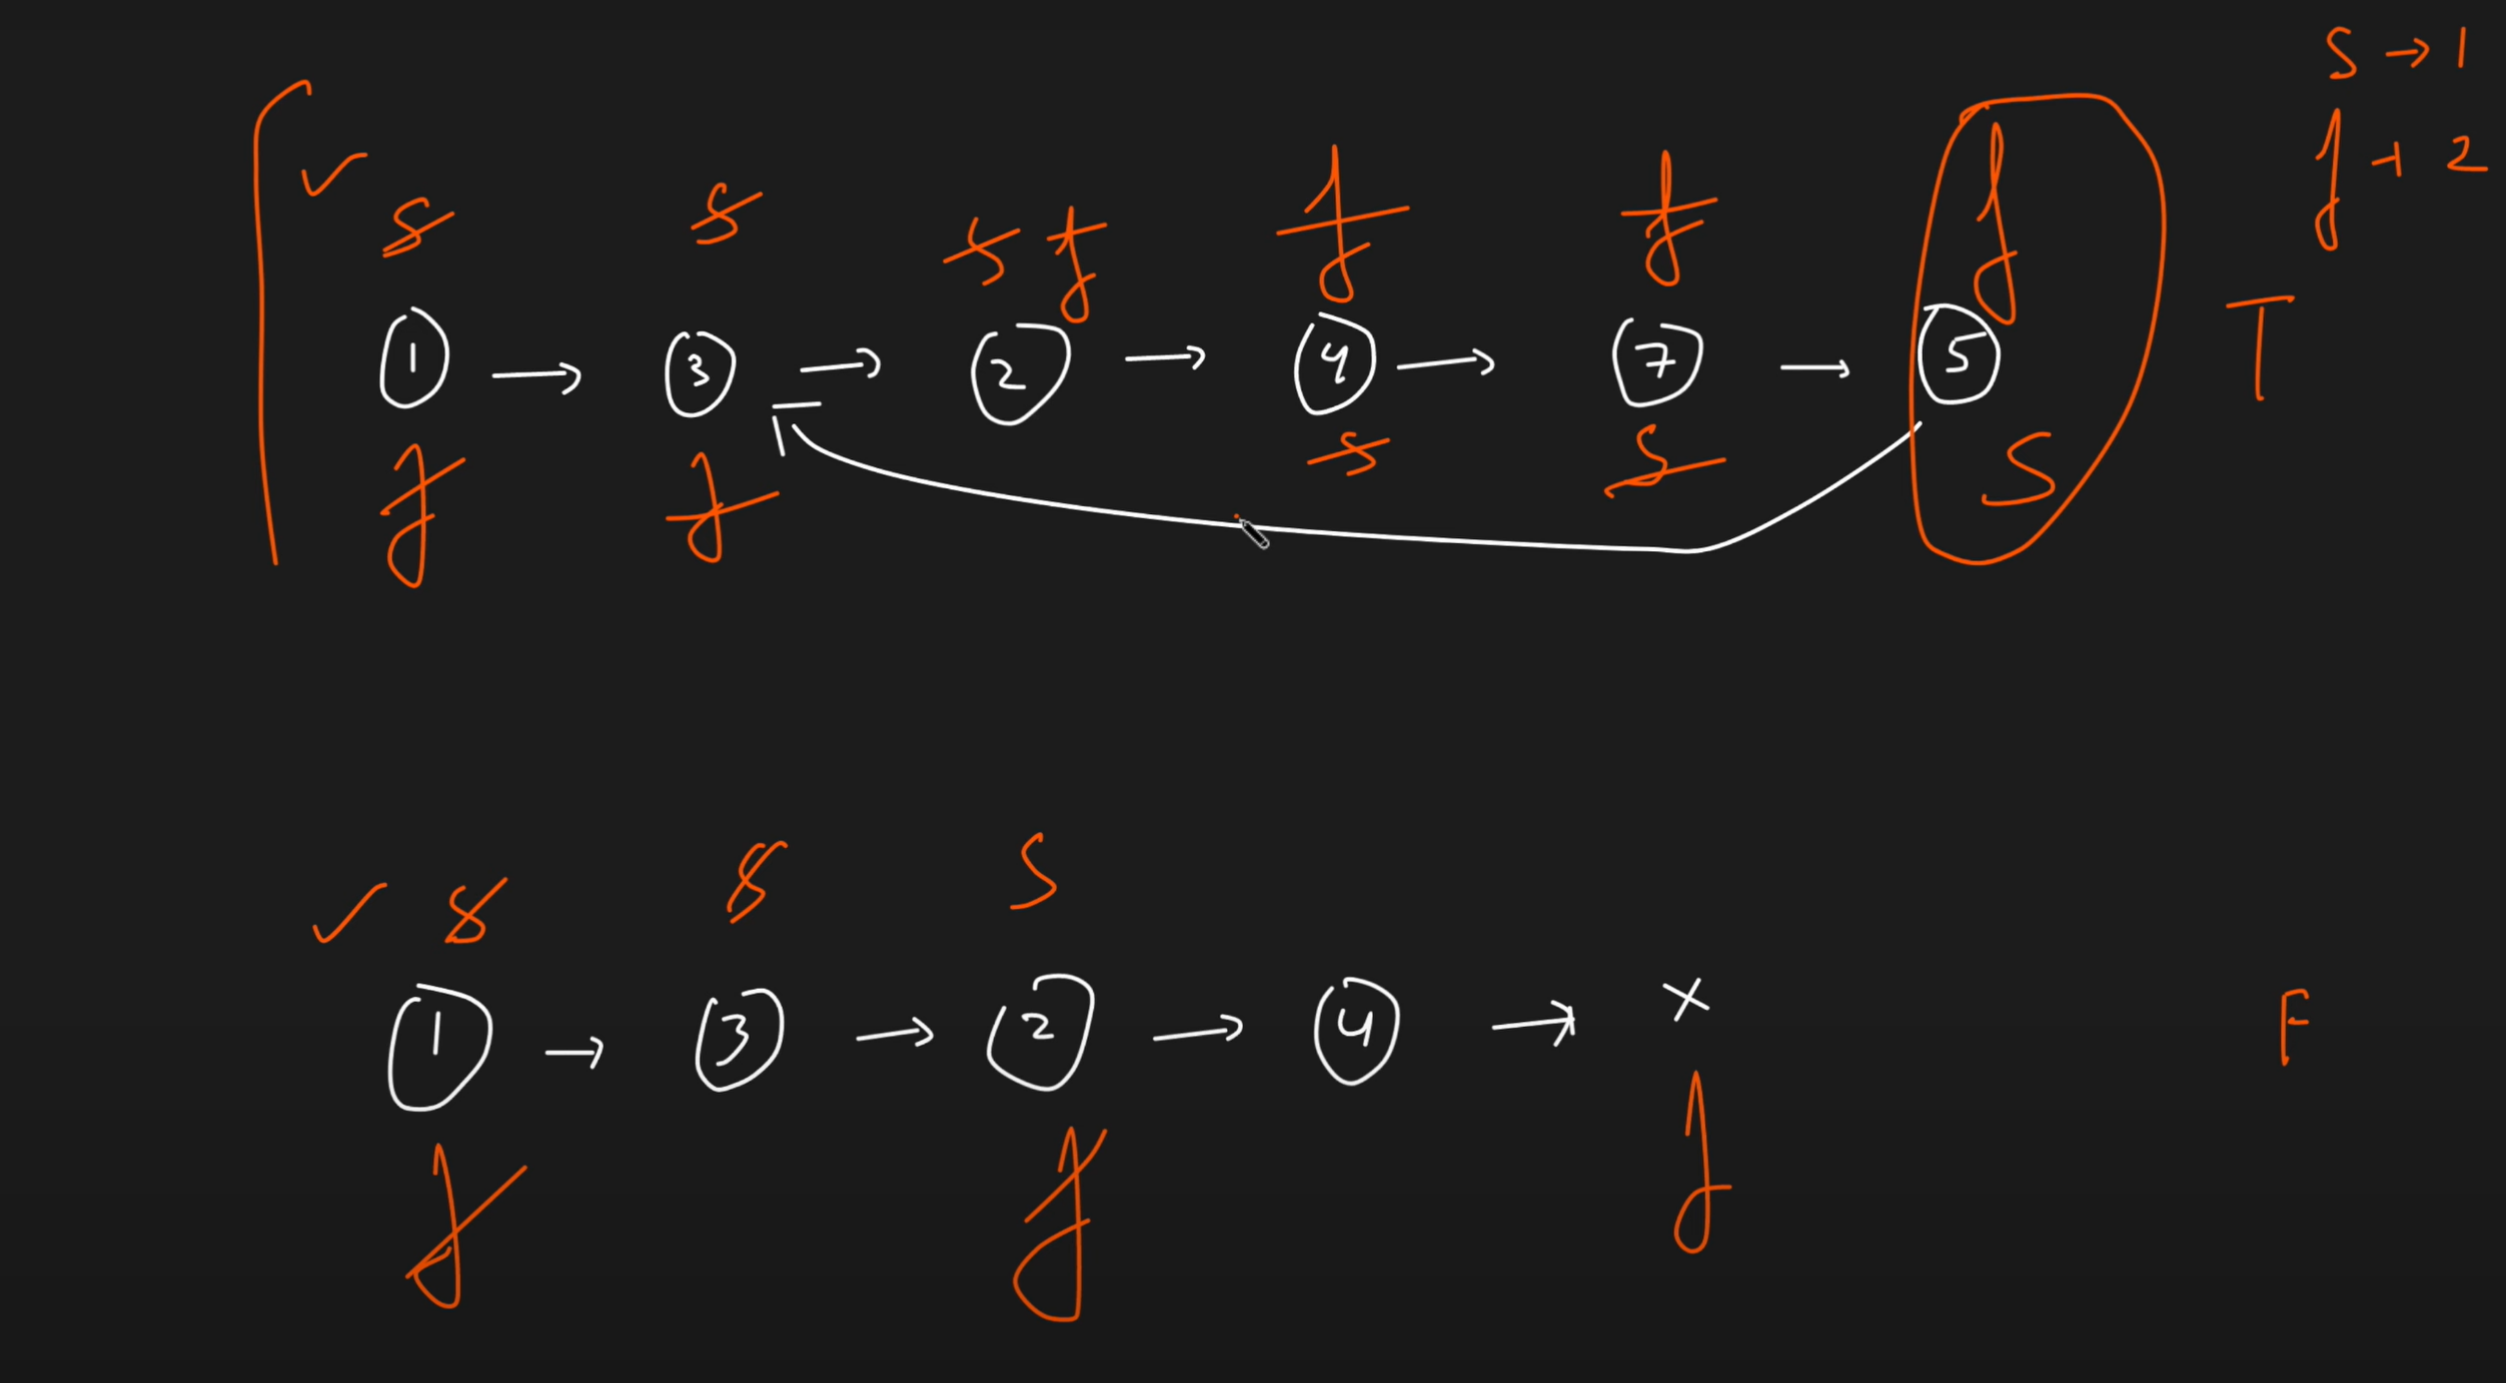 S → 1
f → 2
s s s f f f f
1 → 3 → 2 → 4 → 7 → 5 T
f f s s s
s s s
1 → 3 → 2 → 4 → × F
f f f